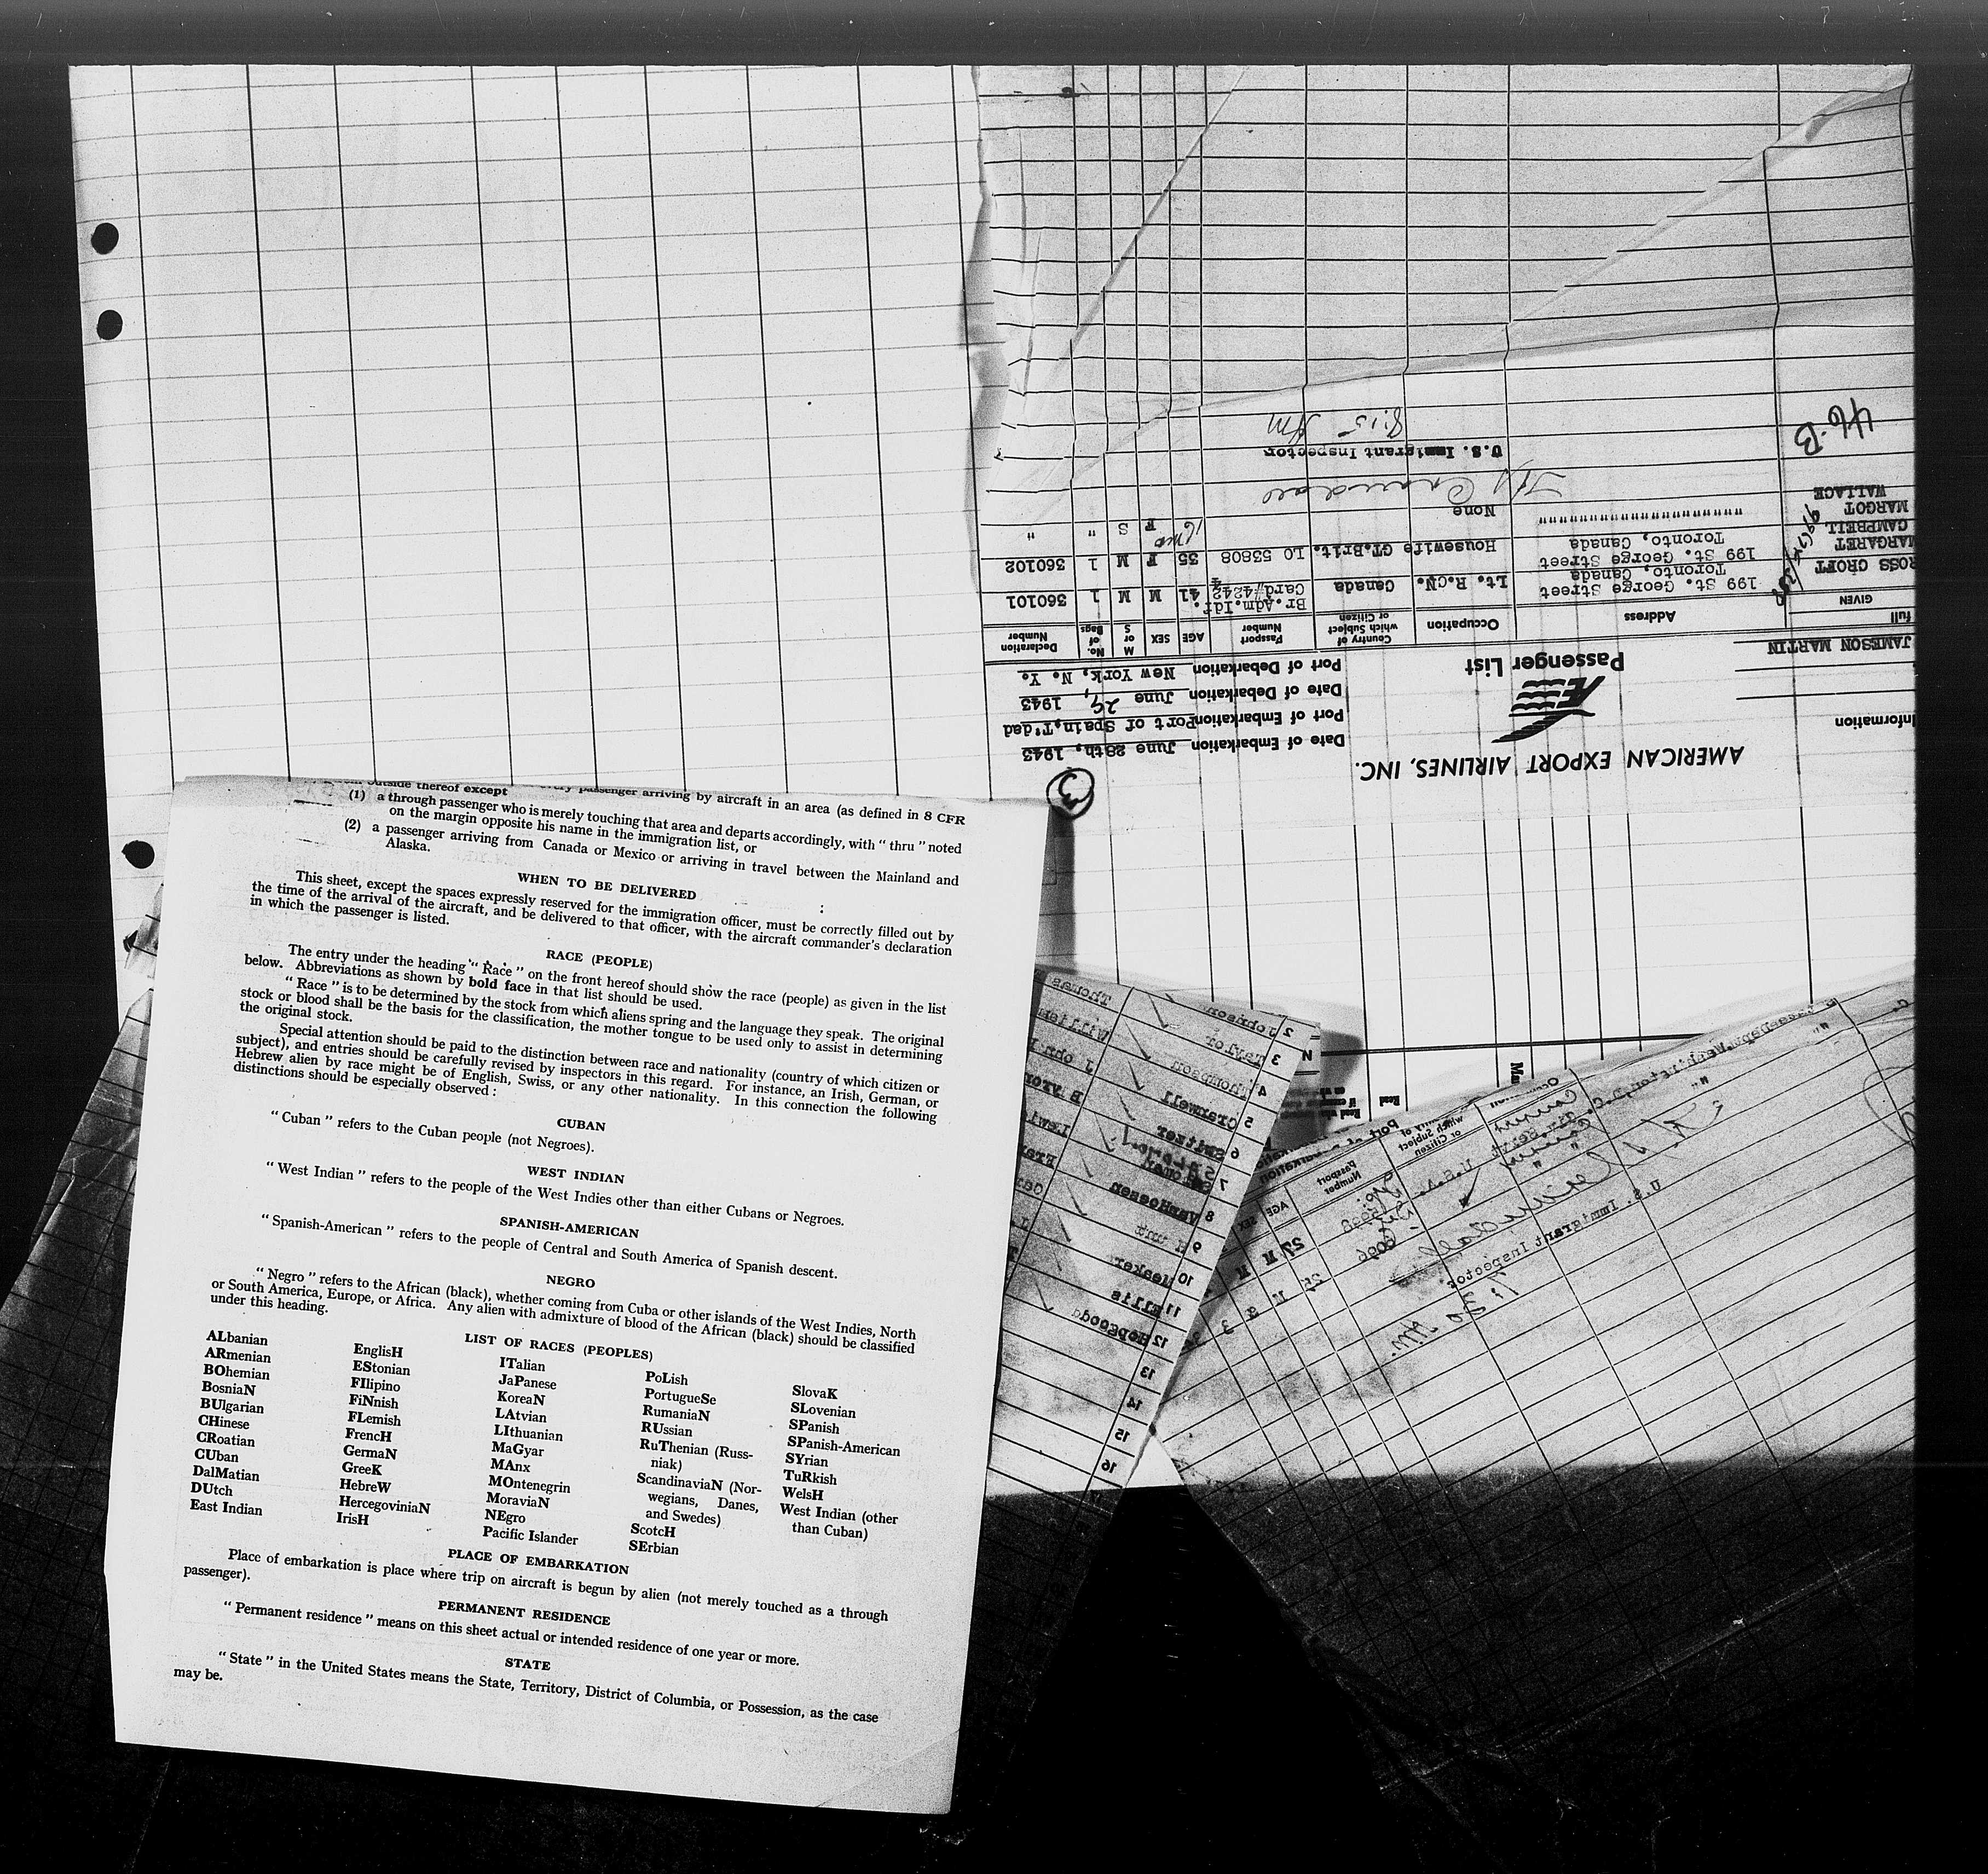 outside thereof except every passenger arriving by aircraft in an area (as defined in 8 CFR
(1) a through passenger who is merely touching that area and departs accordingly, with “ thru ” noted
on the margin opposite his name in the immigration list, or
(2) a passenger arriving from Canada or Mexico or arriving in travel between the Mainland and
Alaska.
WHEN TO BE DELIVERED
This sheet, except the spaces expressly reserved for the immigration officer, must be correctly filled out by
the time of the arrival of the aircraft, and be delivered to that officer, with the aircraft commander's declaration
in which the passenger is listed.
RACE (PEOPLE)
The entry under the heading “ Race ” on the front hereof should show the race (people) as given in the list
below. Abbreviations as shown by bold face in that list should be used.
“ Race ” is to be determined by the stock from which aliens spring and the language they speak. The original
stock or blood shall be the basis for the classification, the mother tongue to be used only to assist in determining
the original stock.
Special attention should be paid to the distinction between race and nationality (country of which citizen or
subject), and entries should be carefully revised by inspectors in this regard. For instance, an Irish, German, or
Hebrew alien by race might be of English, Swiss, or any other nationality. In this connection the following
distinctions should be especially observed :
CUBAN
“ Cuban ” refers to the Cuban people (not Negroes).
WEST INDIAN
“ West Indian ” refers to the people of the West Indies other than either Cubans or Negroes.
SPANISH-AMERICAN
“ Spanish-American ” refers to the people of Central and South America of Spanish descent.
NEGRO
“ Negro ” refers to the African (black), whether coming from Cuba or other islands of the West Indies, North
or South America, Europe, or Africa. Any alien with admixture of blood of the African (black) should be classified
under this heading.
LIST OF RACES (PEOPLES)
ALbanian
ARmenian
BOhemian
BosniaN
BUlgarian
CHinese
CRoatian
CUban
DalMatian
DUtch
East Indian
EnglisH
EStonian
FIlipino
FiNnish
FLemish
FrencH
GermaN
GreeK
HebreW
HercegoviniaN
IrisH
ITalian
JaPanese
KoreaN
LAtvian
LIthuanian
MaGyar
MAnx
MOntenegrin
MoraviaN
NEgro
Pacific Islander
PoLish
PortugueSe
RumaniaN
RUssian
RuThenian (Russ-
niak)
ScandinaviaN (Nor-
wegians, Danes,
and Swedes)
ScotcH
SErbian
SlovaK
SLovenian
SPanish
SPanish-American
SYrian
TuRkish
WelsH
West Indian (other
than Cuban)
PLACE OF EMBARKATION
Place of embarkation is place where trip on aircraft is begun by alien (not merely touched as a through
passenger).
PERMANENT RESIDENCE
“ Permanent residence ” means on this sheet actual or intended residence of one year or more.
STATE
“ State ” in the United States means the State, Territory, District of Columbia, or Possession, as the case
may be.
AMERICAN EXPORT AIRLINES, INC.
Information
Passenger List
Date of Embarkation June 28th, 1943
Port of Embarkation Port of Spain, T'dad
Date of Debarkation June 29, 1943
Port of Debarkation New York, N. Y.
JAMESON MARTIN
full
GIVEN
Address
Occupation
Country of which Subject or Citizen
Passport Number
AGE
SEX
M or S
No. of Bags
Declaration Number
ROSS CROFT 199 St. George Street Toronto, Canada Lt. R.CN. Canada Br.Adm.Idf. Card#42424 41 M M 1 360101
MARGARET CAMPBELL 199 St. George Street Toronto, Canada Housewife GT.Brit. LO 53808 35 F M 1 360102
MARGOT WALLACE " None F S " "
U.S. Immigrant Inspector
8:15 AM
46-B
2 Johnson Thomas
3 Taylor William
4 Thompson John
5 Cramwell
6 Switzer
7
8 VanHoesen
9 Hunt
10 Meeker
11 Ellis
12 Hopgood
13
14
15
16
Washington, D.C.
U.S. Immigrant Inspector.
Passport Number
which subject or Citizen
AGE
SEX